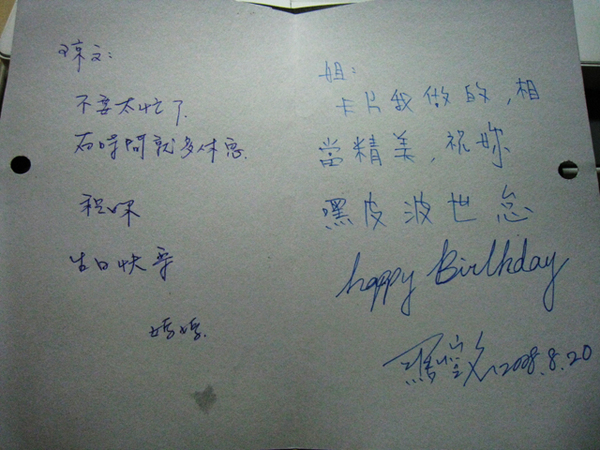 琼文:
不要太忙了.
有時間就多休息.
祝妳
生日快樂
媽媽.
姐:
卡片我做的,相
當精美,祝妳
嘿皮波世怠
happy Birthday
2008.8.20